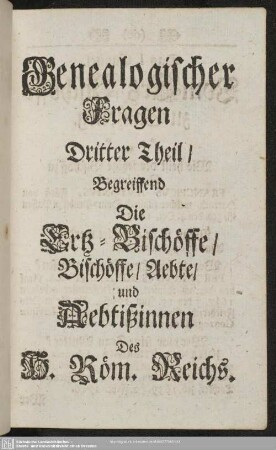 Genealogischer
Fragen
Dritter Theil/
Begreiffend
Die
Ertz-Bischöffe/
Bischöffe/ Aebte/
und
Aebtißinnen
Des
H. Röm. Reichs.